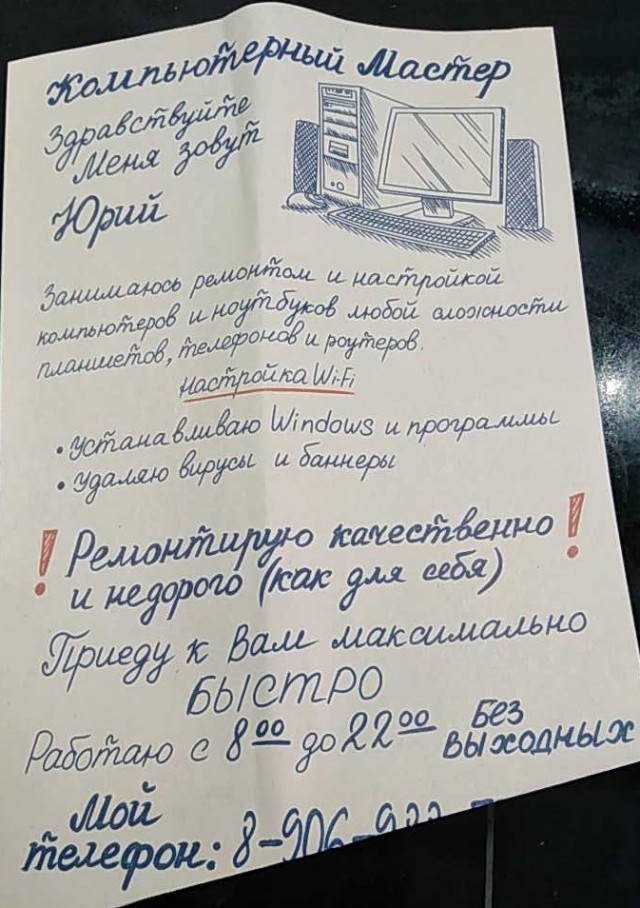 Компьютерный Мастер
Здравствуйте
Меня зовут
Юрий
Занимаюсь ремонтом и настройкой
компьютеров и ноутбуков любой сложности
планшетов, телефонов и роутеров.
Настройка Wi-Fi
• Устанавливаю Windows и программы
• Удаляю вирусы и баннеры
! Ремонтирую качественно !
и недорого (как для себя)
Приеду к Вам максимально
БЫСТРО
Работаю с 8⁰⁰ до 22⁰⁰ Без
выходных
Мой
телефон: 8-906-